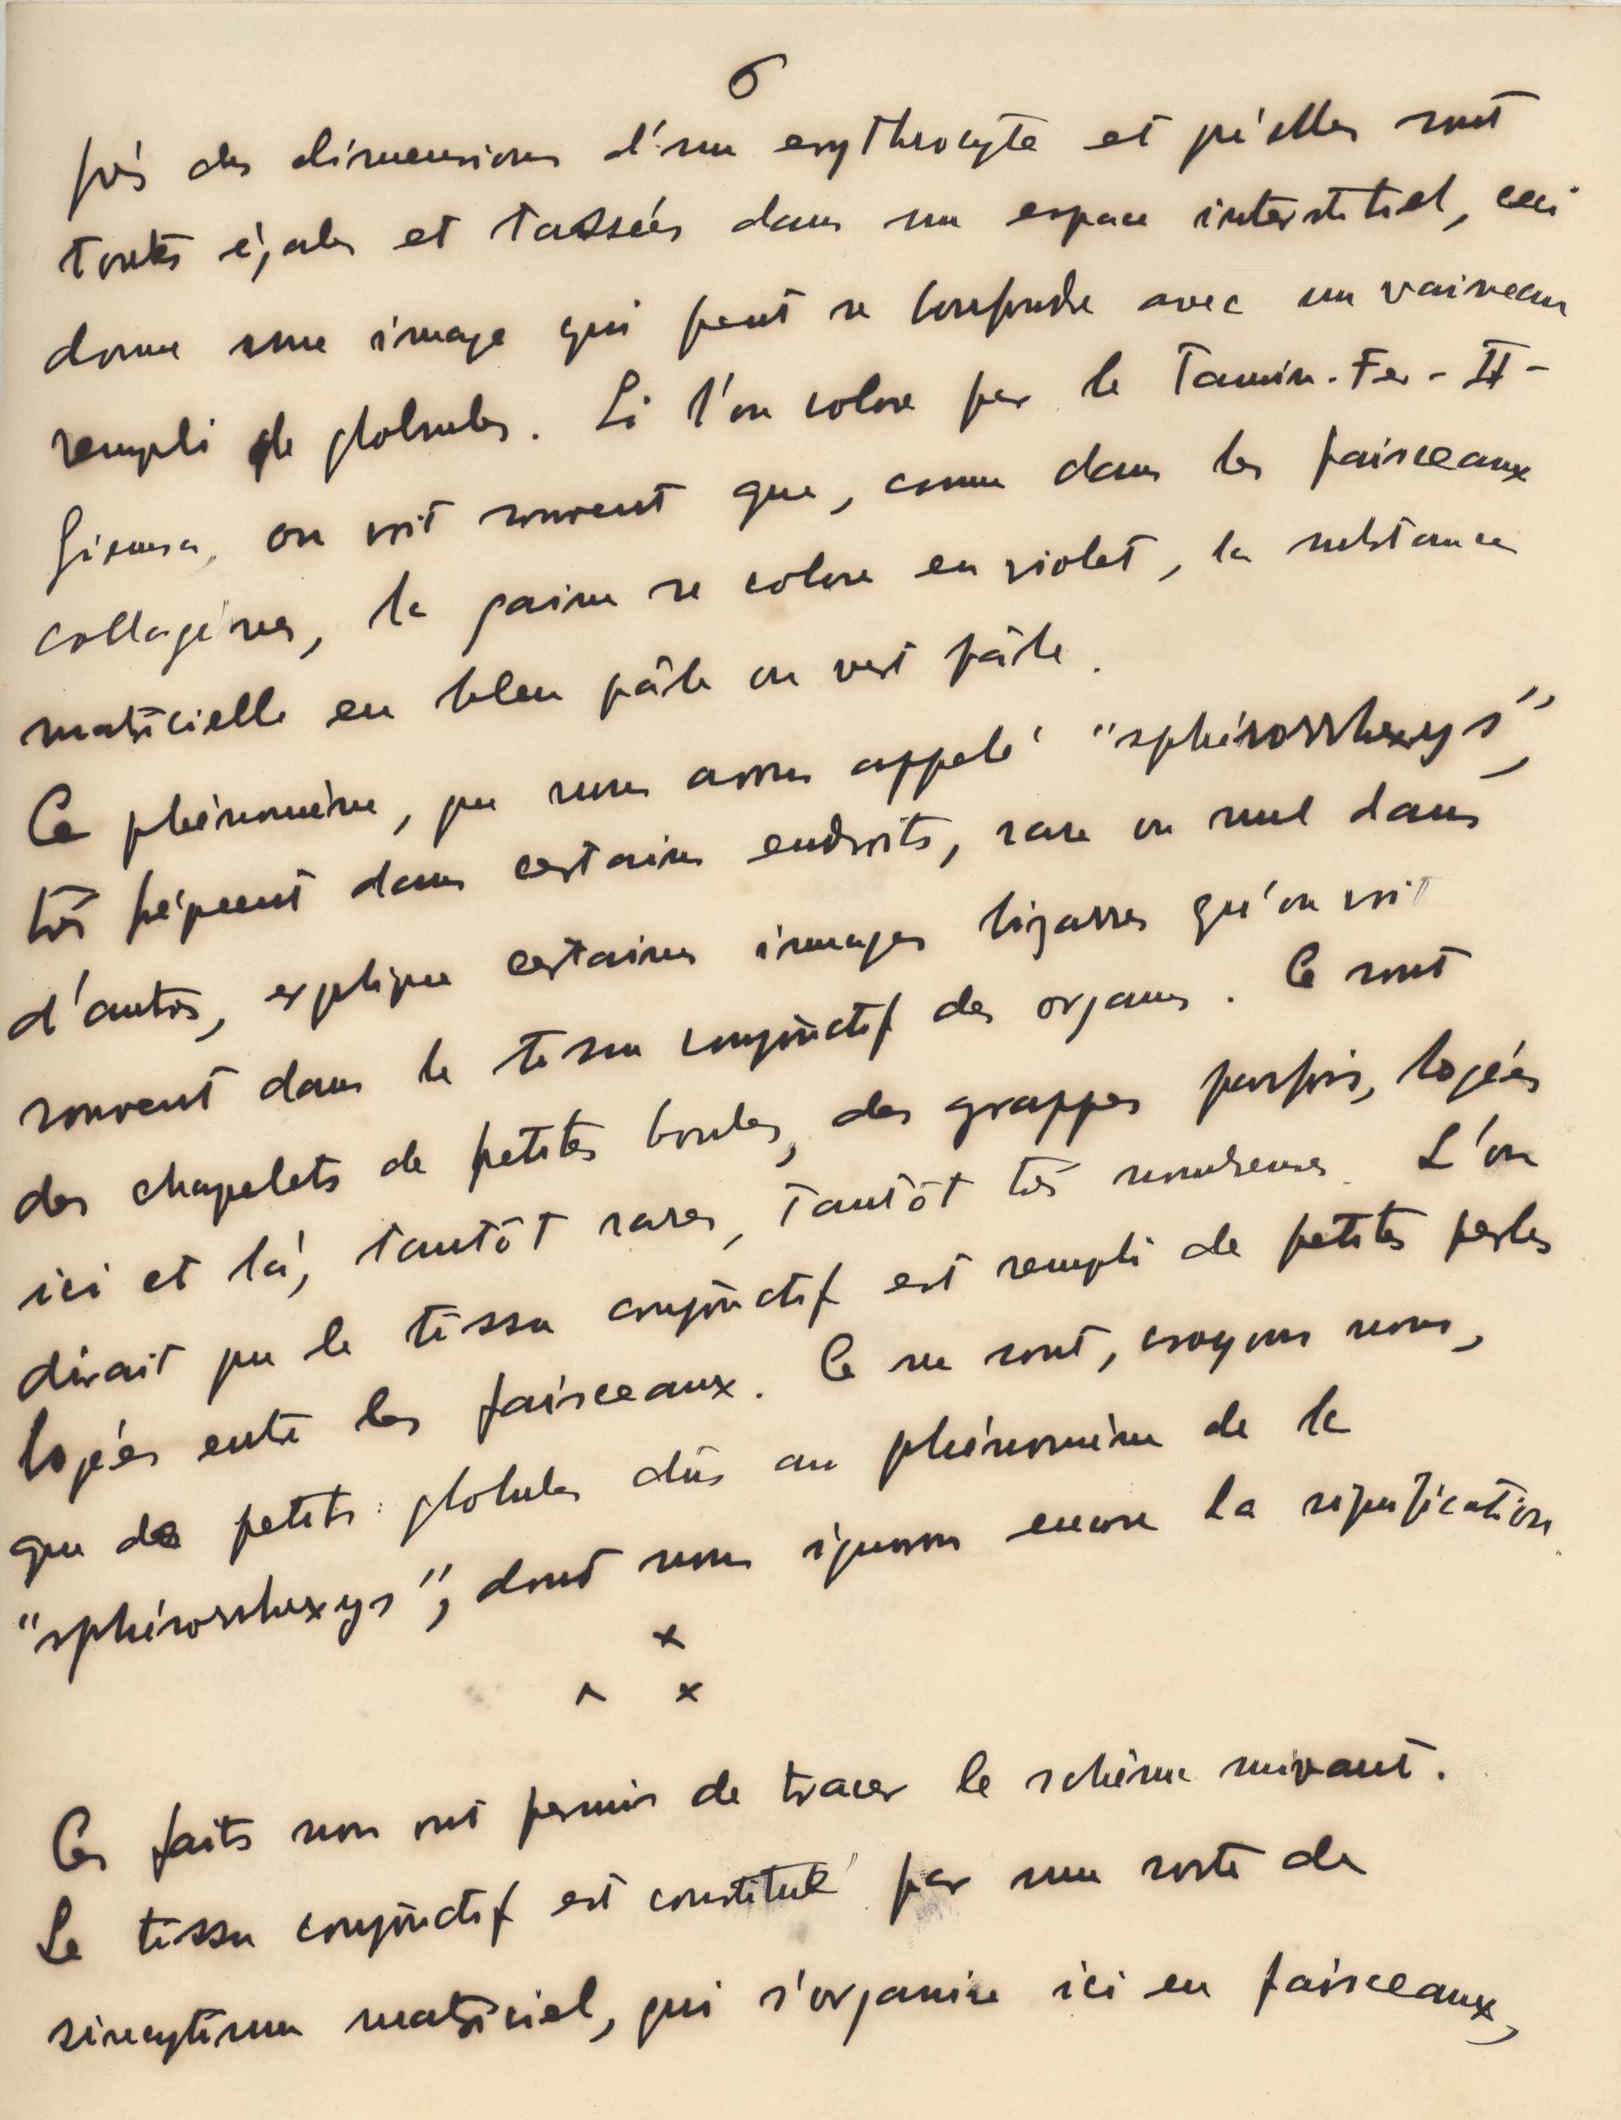 6
près des dimensions d'un erythrocyte et qu'elles sont
toutes égales et tassées dans un espace interstitiel, ceci
donne une image qui peut se confondre avec un vaisseau
rempli de globules. Si l'on colore par le Tannin-Fer-II-
Giemsa, on voit souvent que, comme dans les faisceaux
collagènes, la gaine se colore en violet, la substance
matricielle en bleu pâle ou vert pâle.
Ce phénomène, que nous avons appelé "sphérorrhexys",
très fréquent dans certains endroits, rare ou nul dans
d'autres, explique certaines images bizarres qu'on voit
souvent dans le tissu conjonctif des organes. Ce sont
des chapelets de petites boules, des grappes parfois, logées
ici et là, tantôt rares, tantôt très nombreuses. L'on
dirait que le tissu conjonctif est rempli de petites perles
logées entre les faisceaux. Ce ne sont, croyons nous,
que de petits globules dûs au phénomène de la
"sphérorrhexys", dont nous ignorons encore la signification.
x
x x
Ces faits nous ont permis de tracer le schème suivant.
Le tissu conjonctif est constitué par une sorte de
sincytium matriciel, qui s'organise ici en faisceaux,